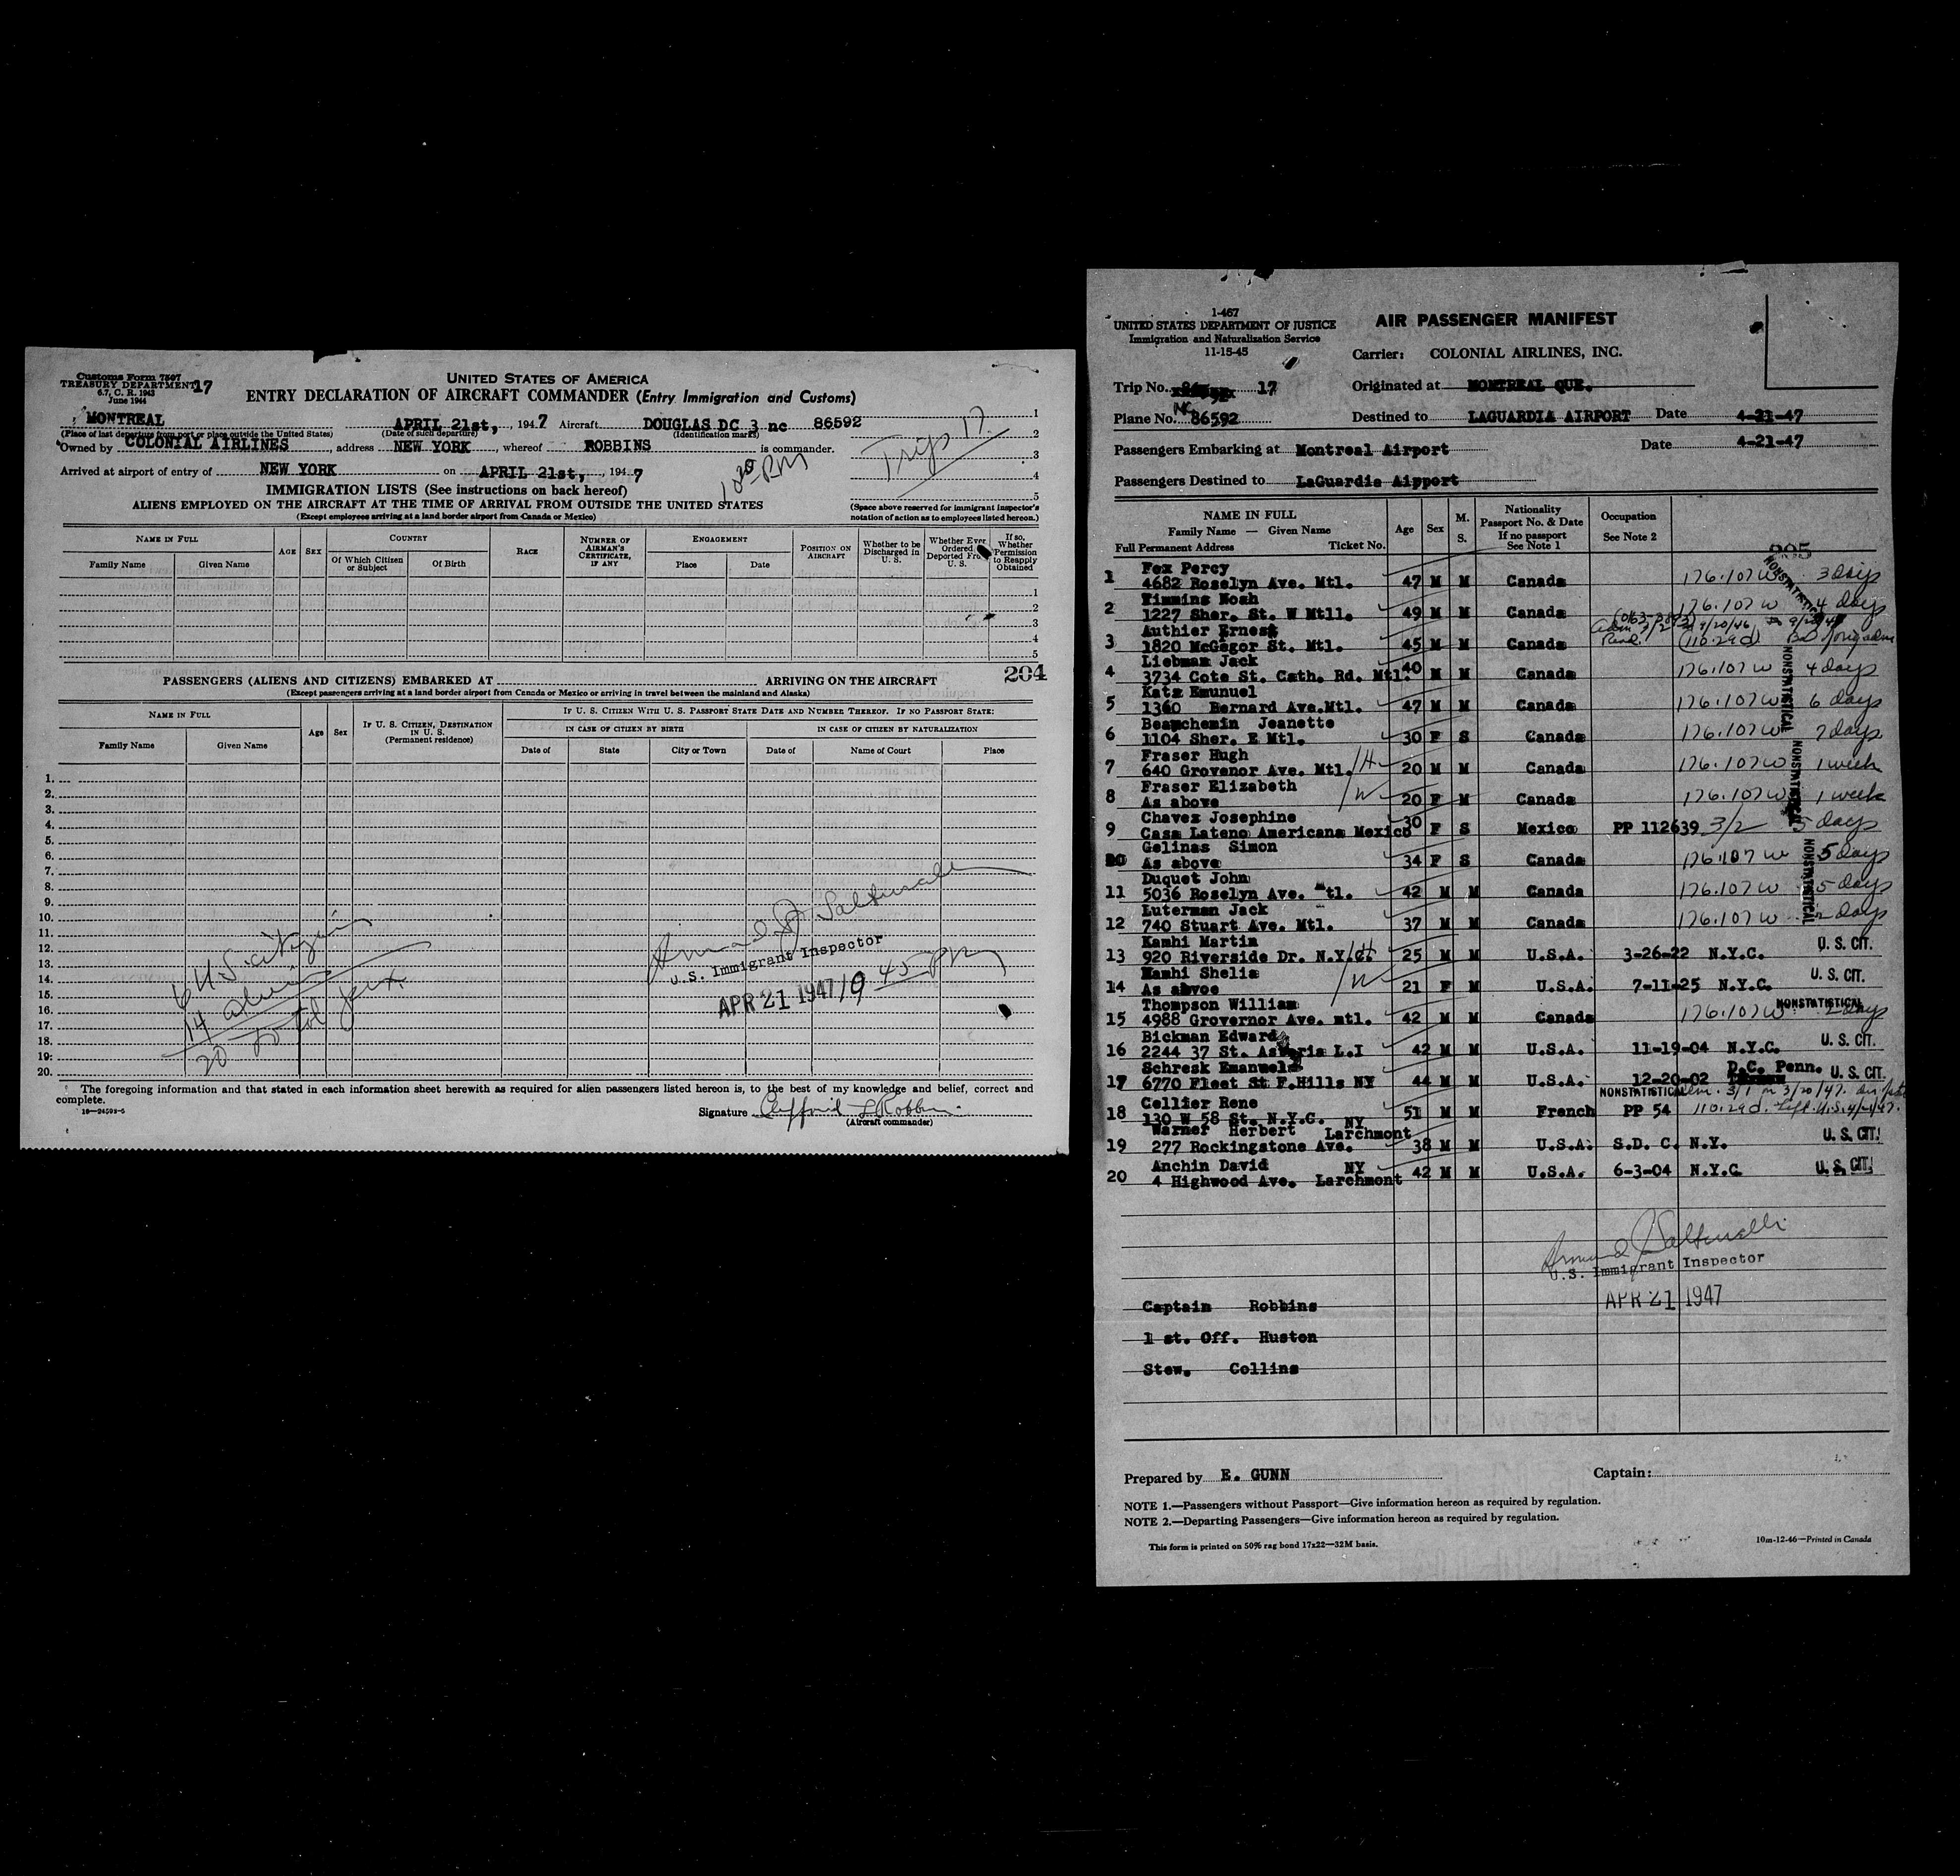 Customs Form 7507
TREASURY DEPARTMENT 17
6.7, C. R. 1943
June 1944
UNITED STATES OF AMERICA
ENTRY DECLARATION OF AIRCRAFT COMMANDER (Entry Immigration and Customs)
MONTREAL APRIL 21st, , 194 7 Aircraft DOUGLAS DC 3 nc 86592
(Place of last departure from port or place outside the United States) (Date of such departure) (Identification marks)
Owned by COLONIAL AIRLINES , address NEW YORK , whereof ROBBINS is commander.
Arrived at airport of entry of NEW YORK on APRIL 21st, , 194 7
Trip 17
1
2
3
4
5
IMMIGRATION LISTS (See instructions on back hereof)
ALIENS EMPLOYED ON THE AIRCRAFT AT THE TIME OF ARRIVAL FROM OUTSIDE THE UNITED STATES
(Except employees arriving at a land border airport from Canada or Mexico)
(Space above reserved for immigrant inspector's
notation of action as to employees listed hereon.)
NAME IN FULL AGE SEX COUNTRY RACE NUMBER OF AIRMAN'S CERTIFICATE, IF ANY ENGAGEMENT POSITION ON AIRCRAFT Whether to be Discharged in U. S. Whether Ever Ordered Deported From U. S. If so, Whether Permission to Reapply Obtained
Family Name Given Name Of Which Citizen or Subject Of Birth Place Date
1
2
3
4
5
204
PASSENGERS (ALIENS AND CITIZENS) EMBARKED AT ARRIVING ON THE AIRCRAFT
(Except passengers arriving at a land border airport from Canada or Mexico or arriving in travel between the mainland and Alaska)
NAME IN FULL Age Sex IF U. S. CITIZEN, DESTINATION IN U. S. (Permanent residence) IF U. S. CITIZEN WITH U. S. PASSPORT STATE DATE AND NUMBER THEREOF. IF NO PASSPORT STATE:
IN CASE OF CITIZEN BY BIRTH IN CASE OF CITIZEN BY NATURALIZATION
Family Name Given Name Date of State City or Town Date of Name of Court Place
1.
2.
3.
4.
5.
6.
7.
8.
9.
10.
11.
12.
13.
14.
15.
16.
17.
18.
19.
20.
6 U S citizens
14 aliens
20 total
U. S. Immigrant Inspector
APR 21 1947 / 9 45 PM
The foregoing information and that stated in each information sheet herewith as required for alien passengers listed hereon is, to the best of my knowledge and belief, correct and
complete.
16—24593-5
Signature Clifford L Robbins
(Aircraft commander)
1-467
UNITED STATES DEPARTMENT OF JUSTICE
Immigration and Naturalization Service
11-15-45
AIR PASSENGER MANIFEST
Carrier: COLONIAL AIRLINES, INC.
Trip No. 17 Originated at MONTREAL QUE.
Plane No. NC 86592 Destined to LAGUARDIA AIRPORT Date 4-21-47
Passengers Embarking at Montreal Airport Date 4-21-47
Passengers Destined to LaGuardia Aipport
NAME IN FULL Age Sex M. S. Nationality Passport No. & Date If no passport See Note 1 Occupation See Note 2
Family Name — Given Name
Full Permanent Address Ticket No.
205
Fox Percy
1 4682 Roselyn Ave. Mtl. 47 M M Canada 176.107 W 3 days
Timmins Noah
2 1227 Sher. St. W Mtll. 49 M M Canada 176.107 W 4 days
Authier Ernest
3 1820 McGegor St. Mtl. 45 M M Canada (110.29d)
Liebman Jack
4 3734 Cote St. Cath. Rd. Mtl. 40 M M Canada 176.107 W 4 days
Katz Emunuel
5 1360 Bernard Ave.Mtl. 47 M M Canada 176.107 W 6 days
Beauchemin Jeanette
6 1104 Sher. E Mtl. 30 F S Canada 176.107 W 7 days
Fraser Hugh
7 640 Grovenor Ave. Mtl. /H 20 M M Canada 176.107 W 1 week
Fraser Elizabeth
8 As above /W 20 F M Canada 176.107 W 1 week
Chavez Josephine
9 Casa Lateno Americana Mexico 30 F S Mexico PP 112639 3/2 5 days
Gelinas Simon
10 As above 34 F S Canada 176.107 W 5 days
Duquet John
11 5036 Roselyn Ave. Mtl. 42 M M Canada 176.107 W 5 days
Luterman Jack
12 740 Stuart Ave. Mtl. 37 M M Canada 176.107 W 2 days
NONSTATISTICAL
NONSTATISTICAL
NONSTATISTICAL
NONSTATISTICAL
Kamhi Martin
13 920 Riverside Dr. N.Y. /H 25 M M U.S.A. 3-26-22 N.Y.C. U. S. CIT.
Kamhi Shelia
14 As abvoe /W 21 F M U.S.A. 7-11-25 N.Y.C. U. S. CIT.
Thompson William
15 4988 Grovernor Ave. mtl. 42 M M Canada 176.107 W 2 days NONSTATISTICAL
Bickman Edward
16 2244 37 St. Astoria L.I 42 M M U.S.A. 11-19-04 N.Y.C. U. S. CIT.
Schresk Emanuel
17 6770 Fleet St F.Hills NY 44 M M U.S.A. 12-20-02 D.C. Penn. U. S. CIT.
Cellier Rene
18 130 W 58 St. N.Y.C. 51 M M French PP 54 NONSTATISTICAL 3/1 3/20/47. 110.29d. Left U.S. 4/21/47.
Warner Herbert NY
19 277 Rockingstone Ave. Larchmont 38 M M U.S.A. S.D. C. N.Y. U. S. CIT.
Anchin David NY
20 4 Highwood Ave. Larchmont 42 M M U.S.A. 6-3-04 N.Y.C U. S. CIT.
U.S. Immigrant Inspector
APR 21 1947
Captain Robbins
1 st. Off. Huston
Stew. Collins
Prepared by E. GUNN Captain:
NOTE 1.—Passengers without Passport—Give information hereon as required by regulation.
NOTE 2.—Departing Passengers—Give information hereon as required by regulation.
This form is printed on 50% rag bond 17x22—32M basis. 10m-12-46—Printed in Canada